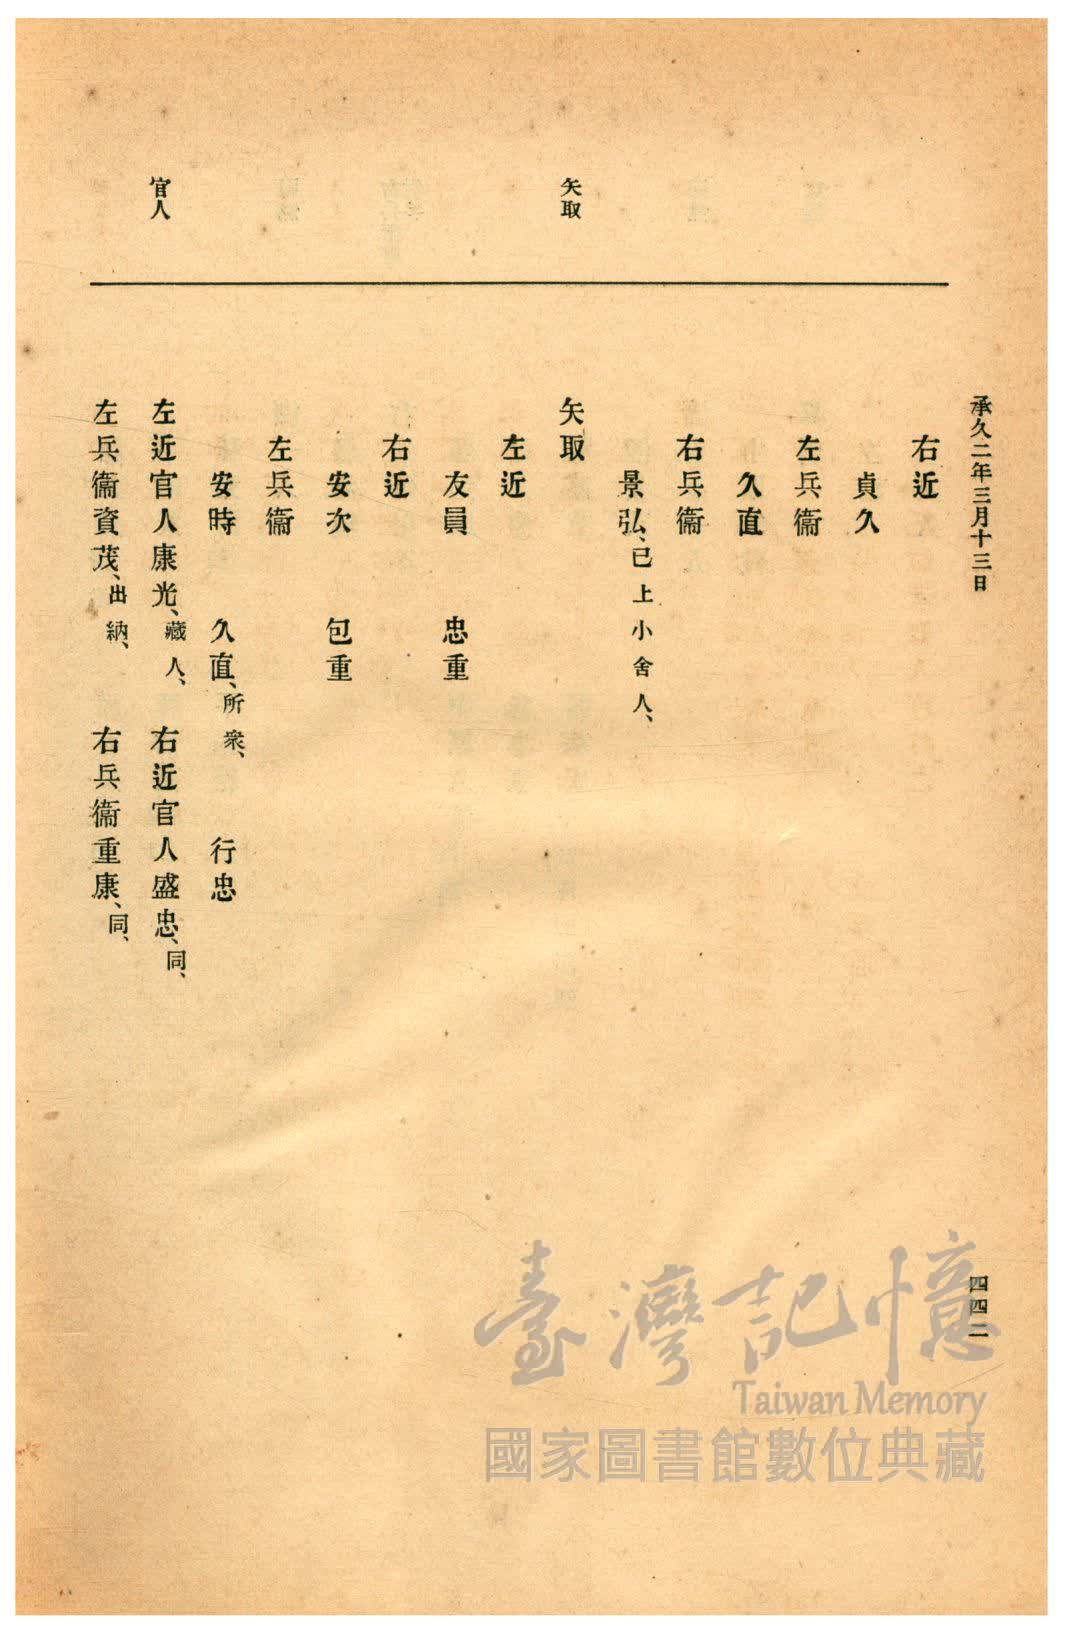 承久二年三月十三日
右近
貞久
左兵衞
久直
右兵衞
景弘、已上小舍人、
矢取
矢取
左近
友員　忠重
右近
安次　包重
左兵衞
安時　久直、所衆、　行忠
官人
左近官人康光、藏人、　右近官人盛忠、同、
左兵衞資茂、出納、　右兵衞重康、同、
四四二
臺灣記憶
Taiwan Memory
國家圖書館數位典藏